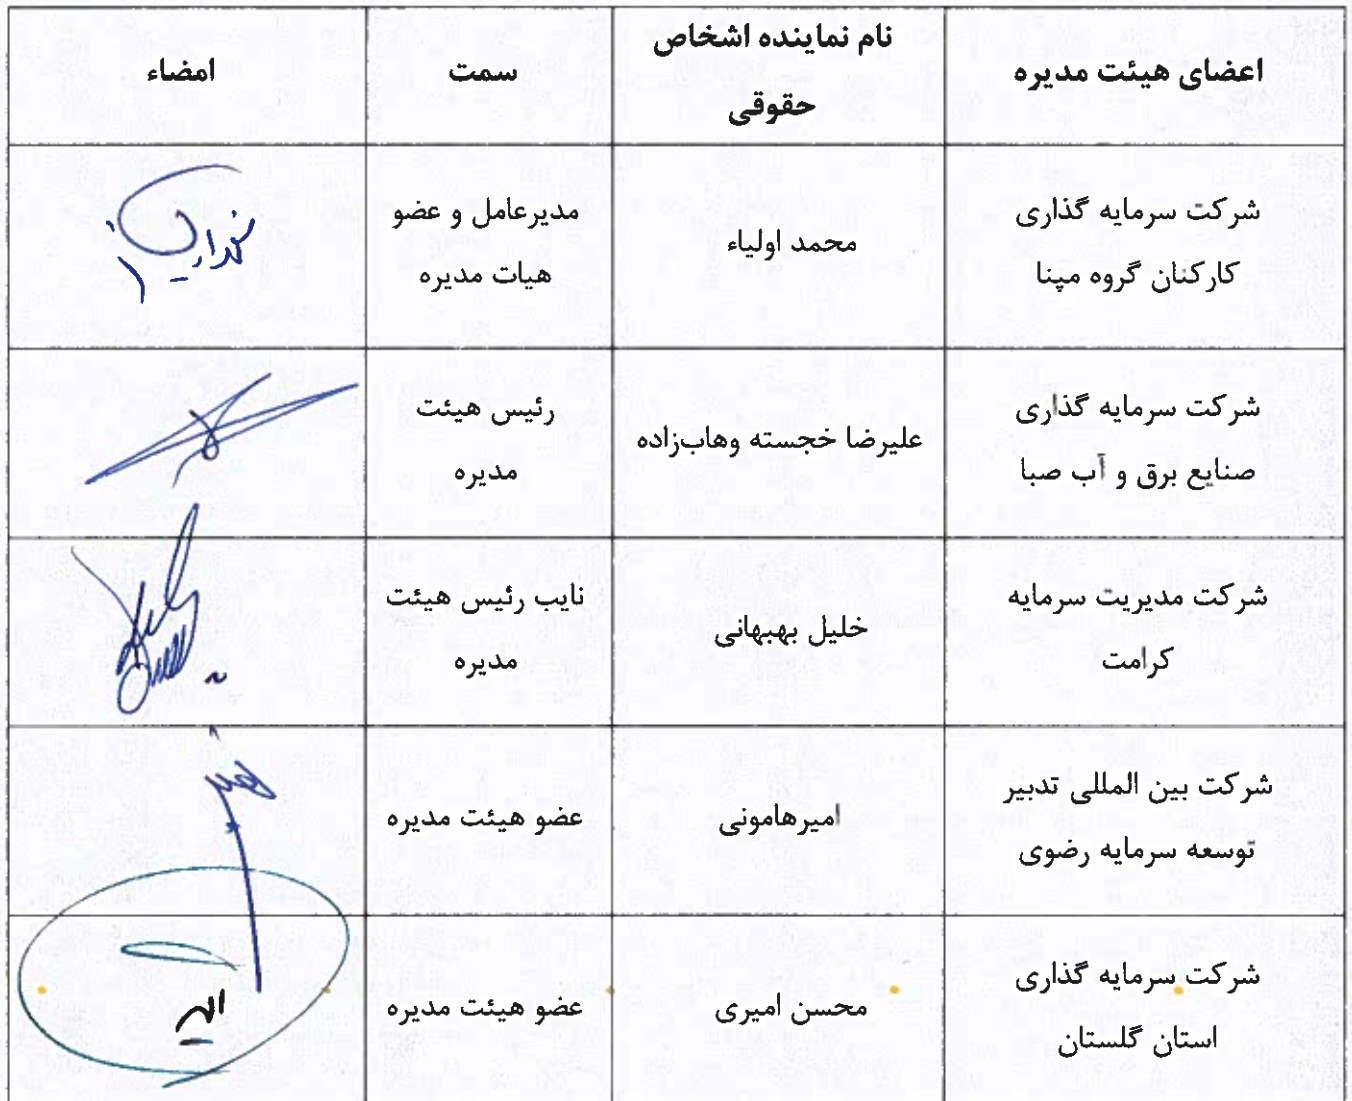 اعضای هیئت مدیره
نام نماینده اشخاص
حقوقی
سمت
امضاء
شرکت سرمایه گذاری
کارکنان گروه مپنا
محمد اولیاء
مدیرعامل و عضو
هیات مدیره
شرکت سرمایه گذاری
صنایع برق و آب صبا
علیرضا خجسته وهاب‌زاده
رئیس هیئت
مدیره
شرکت مدیریت سرمایه
کرامت
خلیل بهبهانی
نایب رئیس هیئت
مدیره
شرکت بین المللی تدبیر
توسعه سرمایه رضوی
امیرهامونی
عضو هیئت مدیره
شرکت سرمایه گذاری
استان گلستان
محسن امیری
عضو هیئت مدیره